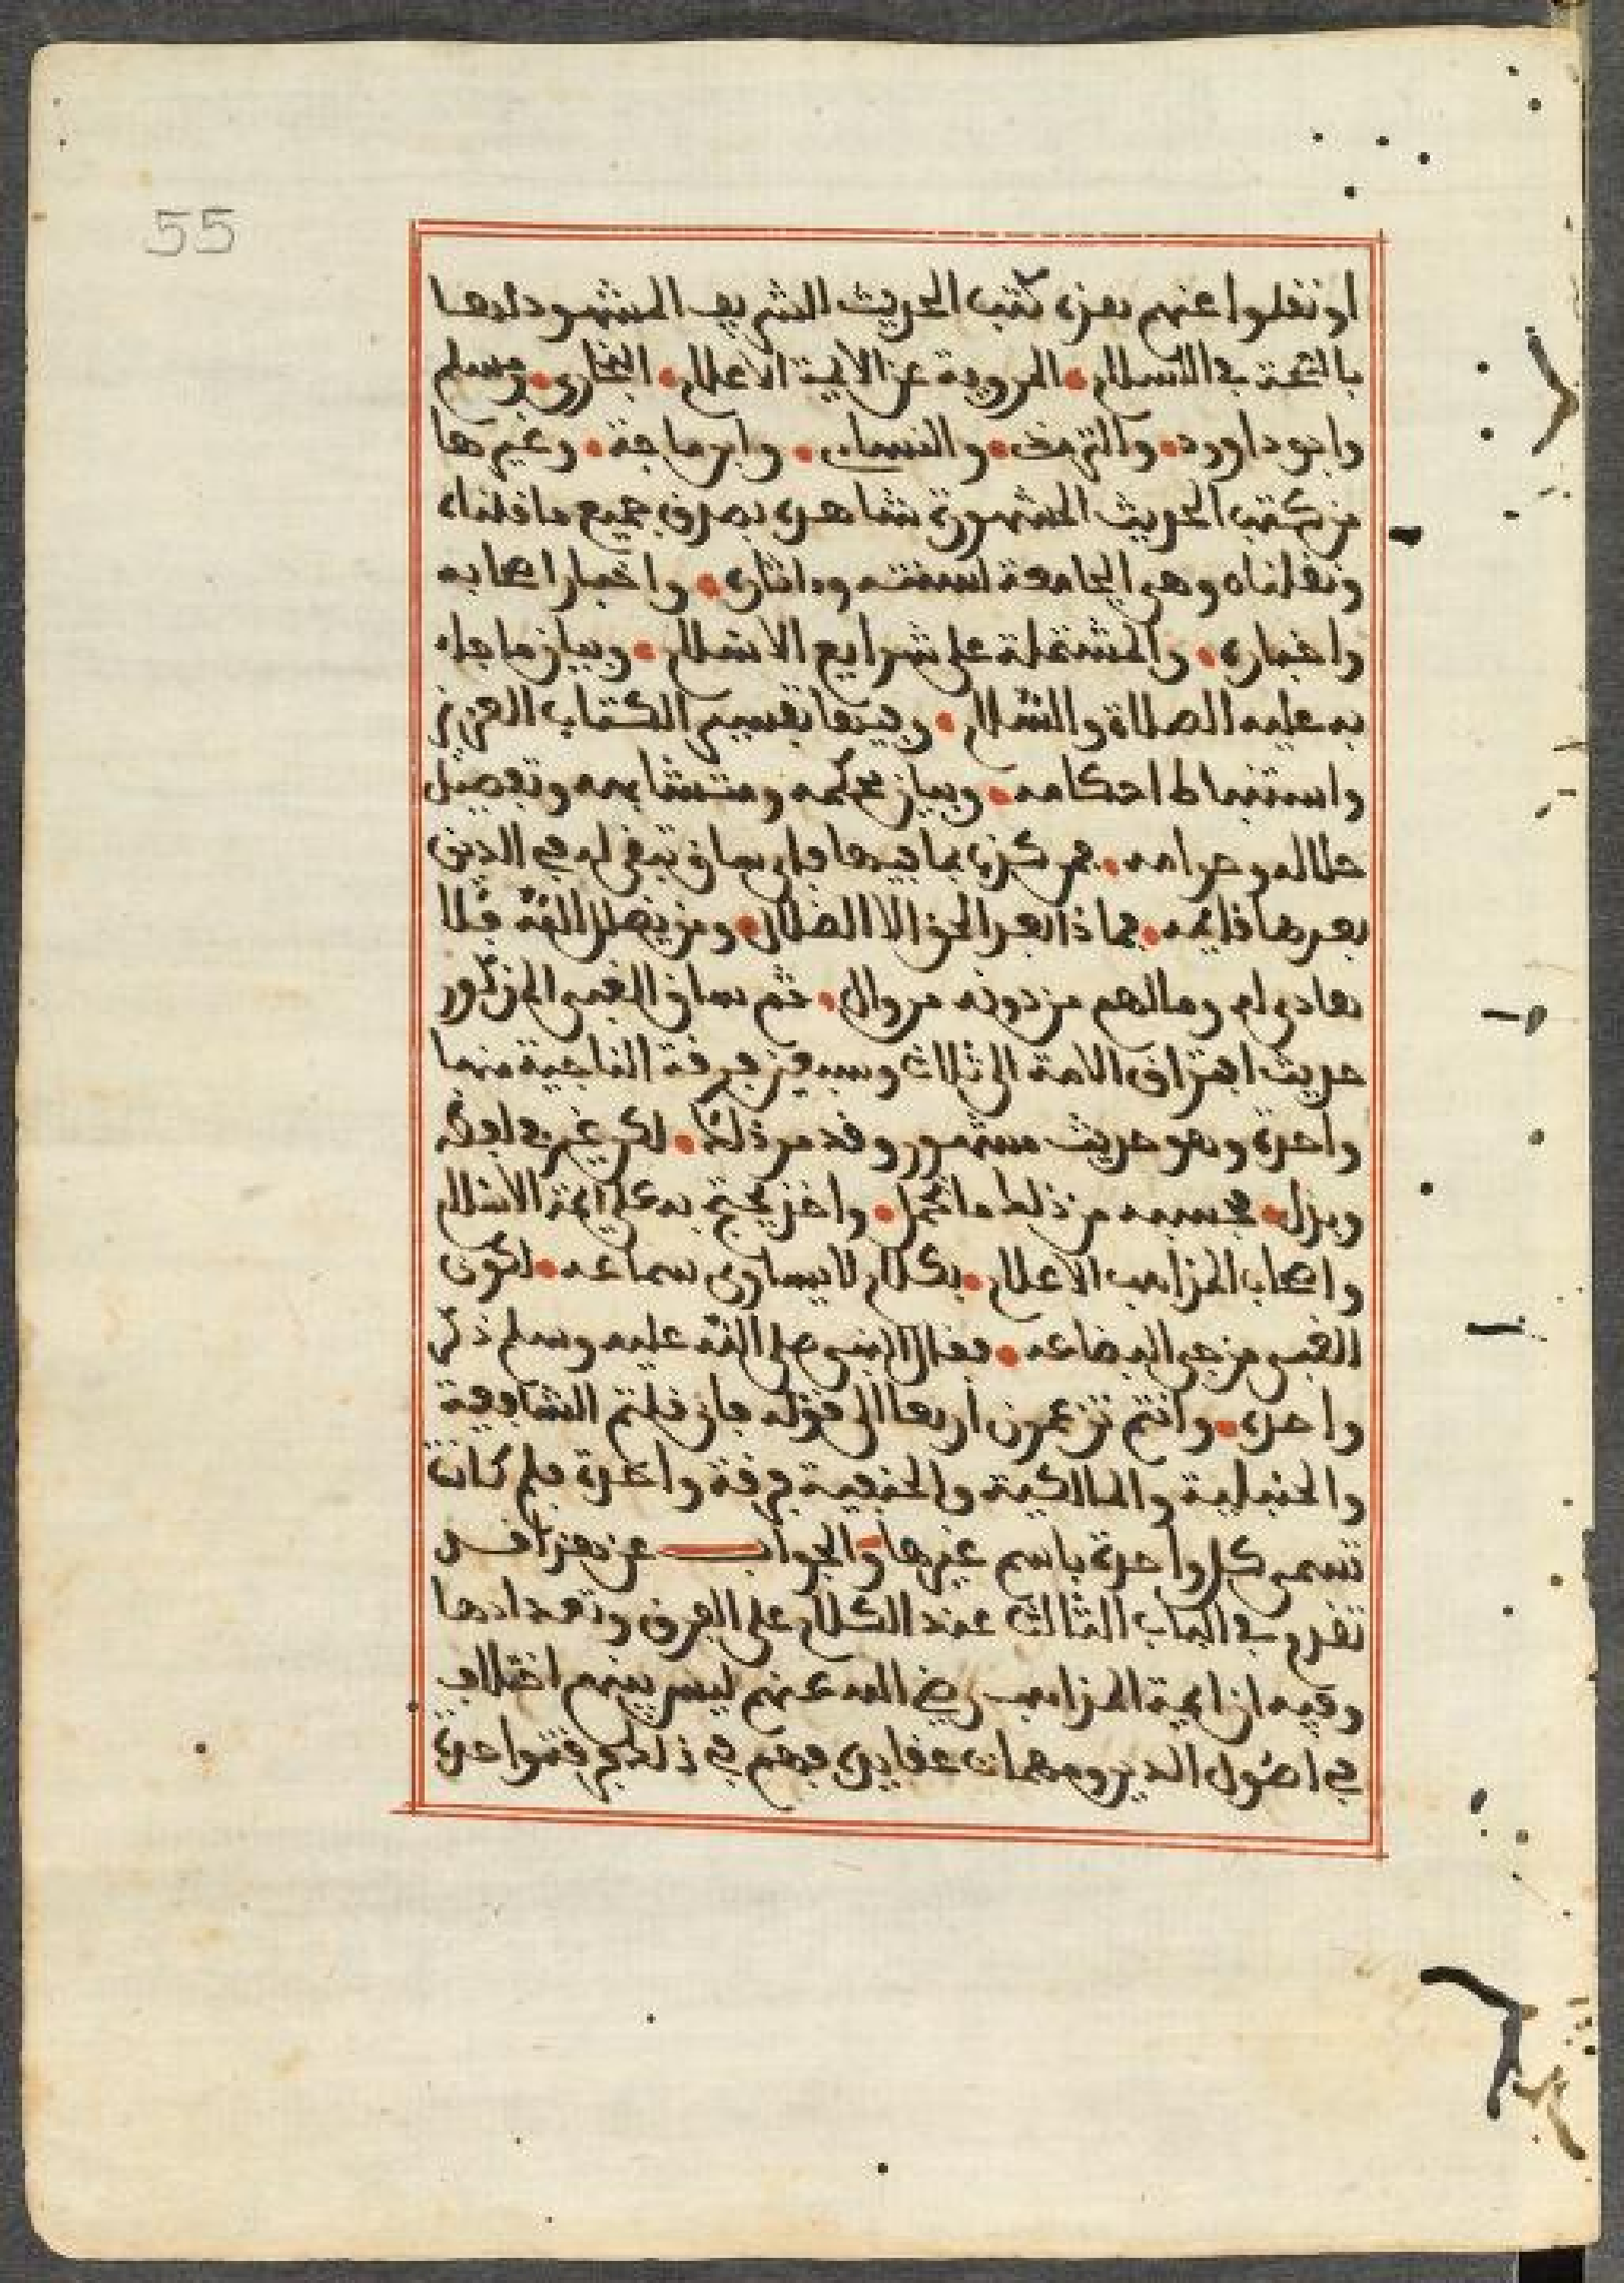 55
او نقلوا عنهم بهذه كتب الحديث الشريف المشهود لها
بالصحة في الاسلام المروية عن الايمة الاعلام البخاري ومسلم
وابو داوود والترمذي والنساءي وابن ماجة وغيرها
من كتب الحديث المشهورة شاهدة بصدق جميع ما قلناه
ونقلناه وهي الجامعة لسنته وءاثاره واخبار اصحابه
واخباره والمشتملة على شرايع الاسلام وبيان ما جاء
به عليه الصلاة والسلام وفيها تفسير الكتاب العزيز
واستنباط احكامه وبيان محكمه ومتشابهه وتفصيل
حلاله وحرامه فمن كذب بما فيها فاي ساق تبقى له في الدين
بعدها قايمه فماذا بعد الحق الا الضلال ومن يضلل الله فلا
هادي له وما لهم من دونه من وال ثم ساق الغبي المذكور
حديث افتراق الامة الى ثلاث وسبعين فرقة الناجية منها
واحدة وهو حديث مشهور وقد مر ذلك لكن غير فيه
وبدل بحسب من ذلك ما تحمل واخذ يحتج به على ايمة الاسلام
واصحاب المذاهب الاعلام بكلام لا يساوي سماعه لكون
الغبي مزجي البضاعه فقال النبي صلى الله عليه وسلم ذكر
واحدة وانتم تزعمون اربعا الى قوله فان قلتم الشافعية
والحنبلية والمالكية والحنفية فرقة واحدة فلم كانت
تسمى كل واحدة باسم غيرها والجواب عن هذا قد
تقدم في الباب الثالث عند الكلام على الفرق وتعدادها
وفيه ان ايمة المذاهب رضي الله عنهم ليس بينهم اختلاف
في اصول الدين ومهمات عقايده فهم في ذلك فرقة واحدة